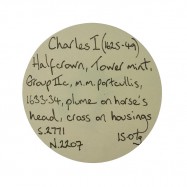 Charles I (1625-49)
Halfcrown, Tower mint,
Group IIc, m.m. portcullis,
1633-34, plume on horse's
head, cross on housings
S.2771
N.2207